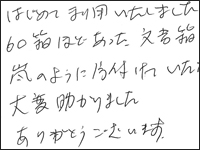 はじめて利用いたしました
60箱ほどあった文書箱
嵐のように片付けていた
大変助かりました
ありがとうございます。